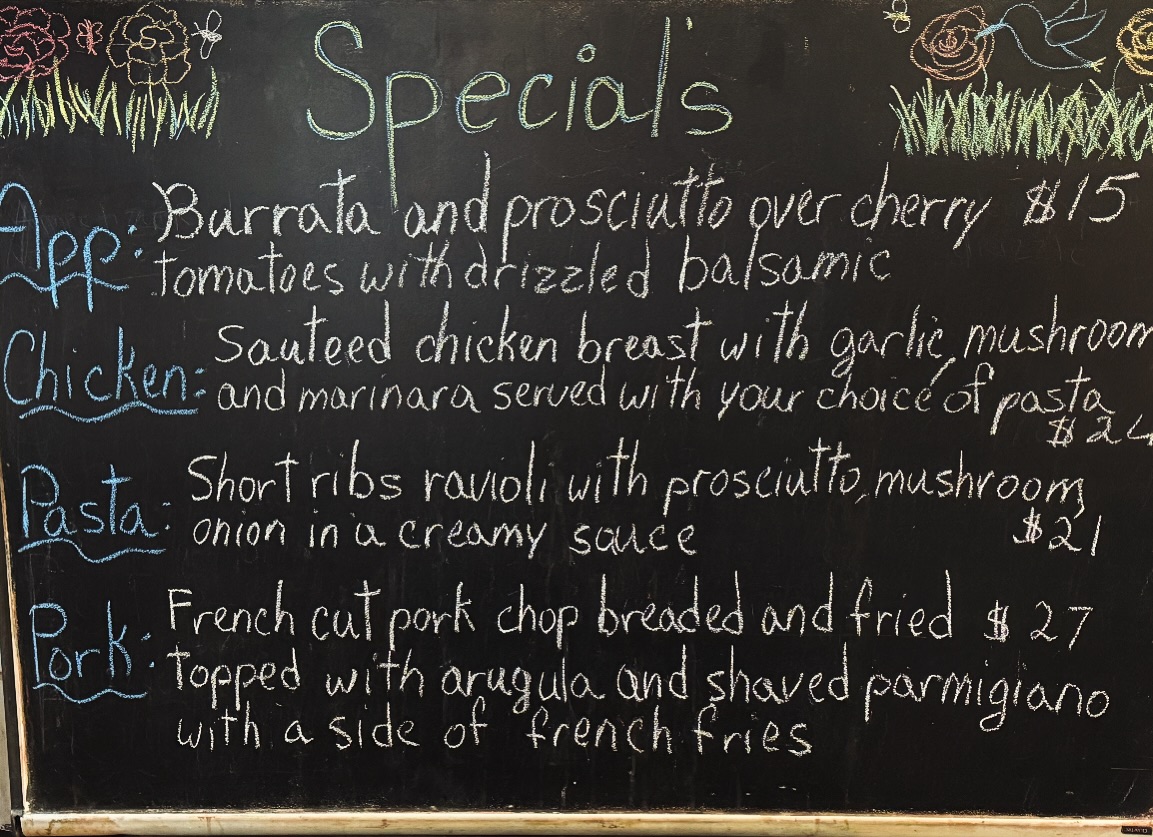 Special's
App: Burrata and prosciutto over cherry $15
tomatoes with drizzled balsamic
Chicken: Sauteed chicken breast with garlic, mushroom
and marinara served with your choice of pasta
$24
Pasta: Short ribs ravioli with prosciutto, mushroom,
onion in a creamy sauce $21
Pork: French cut pork chop breaded and fried $27
topped with arugula and shaved parmigiano
with a side of french fries